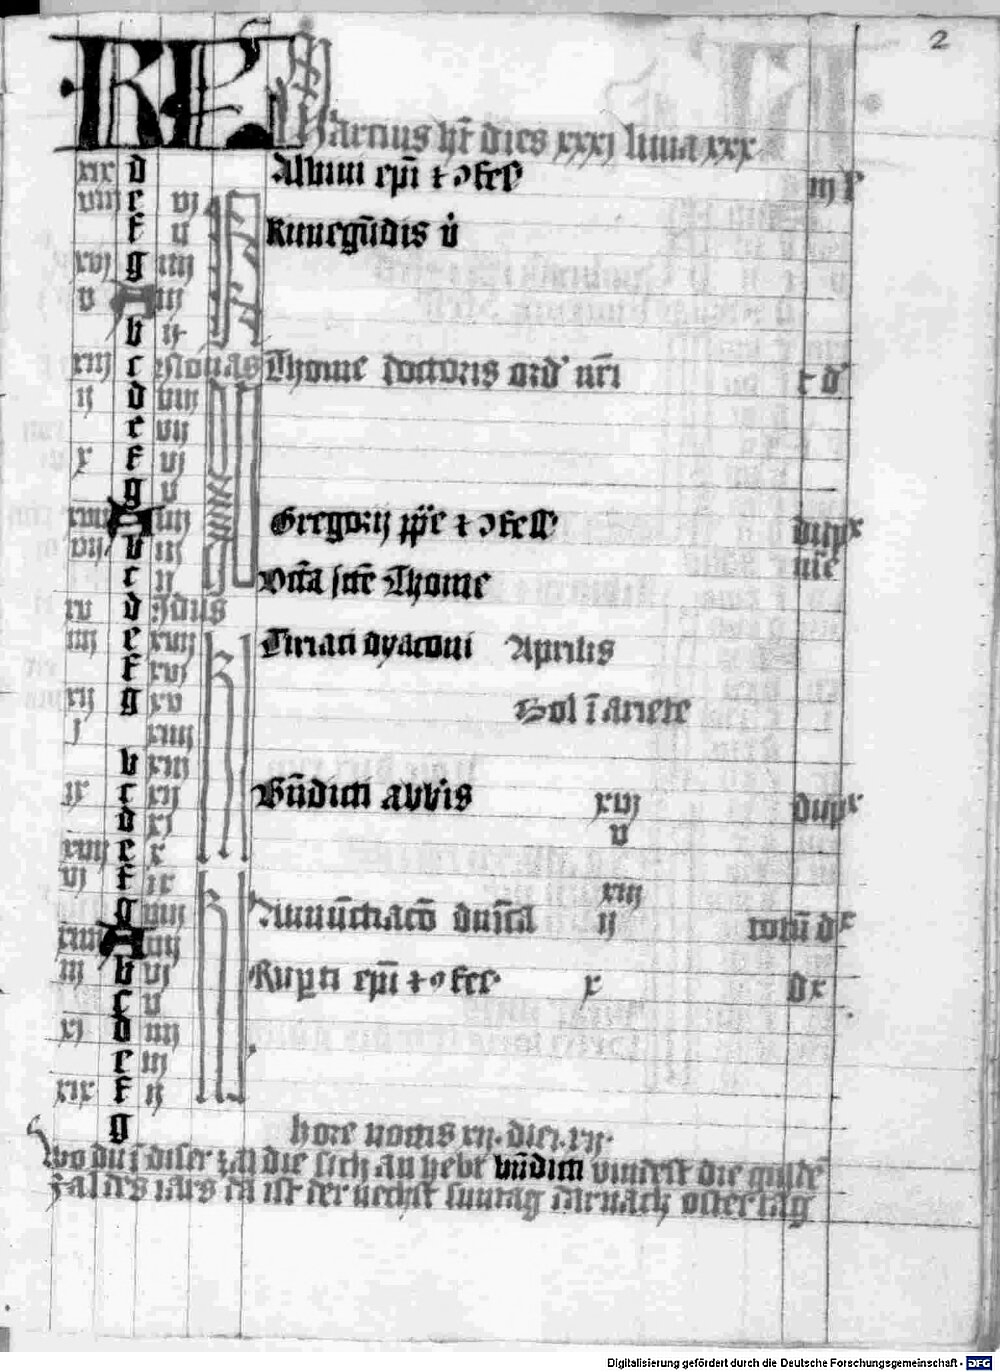 2
KL Marcius ht dies xxxi luna xxx
xix d Albini epi t ↄfess iij l
viij e vj
f v Kunegūdis v
xvj g iiij
v A iij
b ij
xiij c Nonas Thome doctoris ord' nr̄i t d
ij d viij
e vij
x f vj
g v
xviij A iiij Gregorij ppe t ↄfess dupx
vij b iij me
c ij Octa scte Thome
xv d Idus
iiij e xvij Ciriaci dyaconi Aprilis
f xvj
xij g xv Sol ī ariete
j xiiij
b xiij
ix c xij Bn̄dicti abbis xvj dupx
d xj v
xvij e x
vj f ix xiij
g viij Annūctiacō dn̄ica ij totū dx
xiiij A vij
iij b vj Rup̄ti epi t ↄfess x dx
c v
xj d iiij
e iij
xix f ij
g
hore noctis xij. diei. xij.
wo du ī diser zal die sich an hebt bn̄dicti vindest die guldē
zal des iars da ist der nechst suntag darnach ostertag
Digitalisierung gefördert durch die Deutsche Forschungsgemeinschaft - DFG